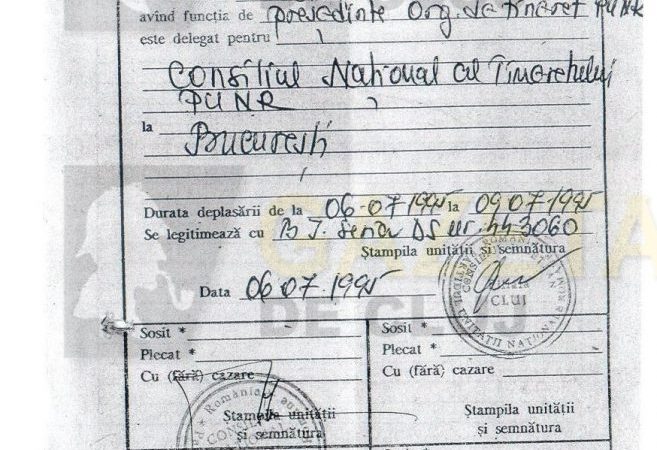 având funcția de președinte Org. de tineret PUNR
este delegat pentru
Consiliul Național al Tineretului
PUNR
la București
Durata deplasării de la 06-07 1995 la 09 07 1995
Se legitimează cu B.I. seria DS nr. 443060
Ștampila unității și semnătura
Data 06.07.1995
CLUJ
GAZETA
DE CLUJ
Sosit *
Plecat *
Cu (fără) cazare
Ștampila unității
și semnătura
România
Sosit *
Plecat *
Cu (fără) cazare
Ștampila unității
și semnătura